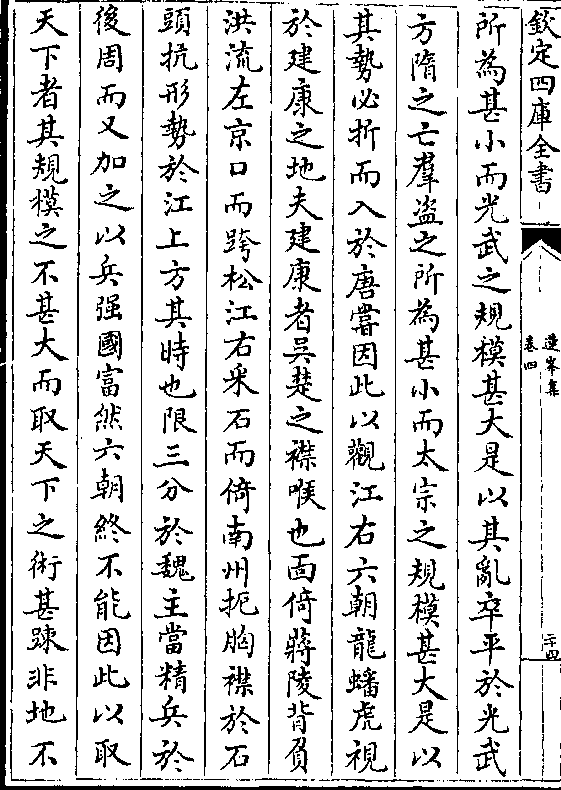 欽定四庫全書
蓮峯集
卷四
二十四
所為甚小而光武之規模甚大是以其亂卒平於光武
方隋之亡羣盗之所為甚小而太宗之規模甚大是以
其勢必折而入於唐嘗因此以觀江右六朝龍蟠虎視
於建康之地夫建康者吳楚之襟喉也面倚蔣陵背負
洪流左京口而跨松江右采石而倚南州扼胸襟於石
頭抗形勢於江上方其時也限三分於魏主當精兵於
後周而又加之以兵强國富然六朝終不能因此以取
天下者其規模之不甚大而取天下之術甚踈非地不